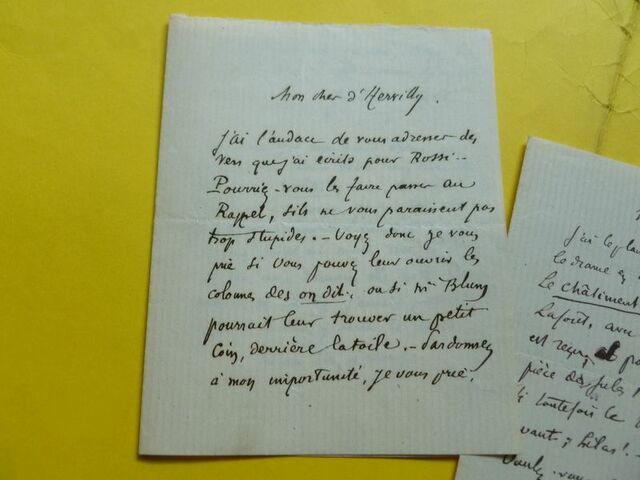 Mon cher d'Hervilly.
J'ai l'audace de vous adresser des
vers que j'ai écrits pour Rossi..
Pourriez-vous les faire passer au
Rappel, s'ils ne vous paraissent pas
trop stupides. - Voyez donc je vous
prie si vous pouvez leur ouvrir les
colonnes des on dit; ou si Mr Blum
pourrait leur trouver un petit
coin, derrière la toile. - Pardonnez
à mon importunité, je vous prie.
J'ai le
le drame en
Le châtiment
Lafont, avec
est reçu
pièce des
Si toutefois le
vant; hélas! -
Voulez-vous